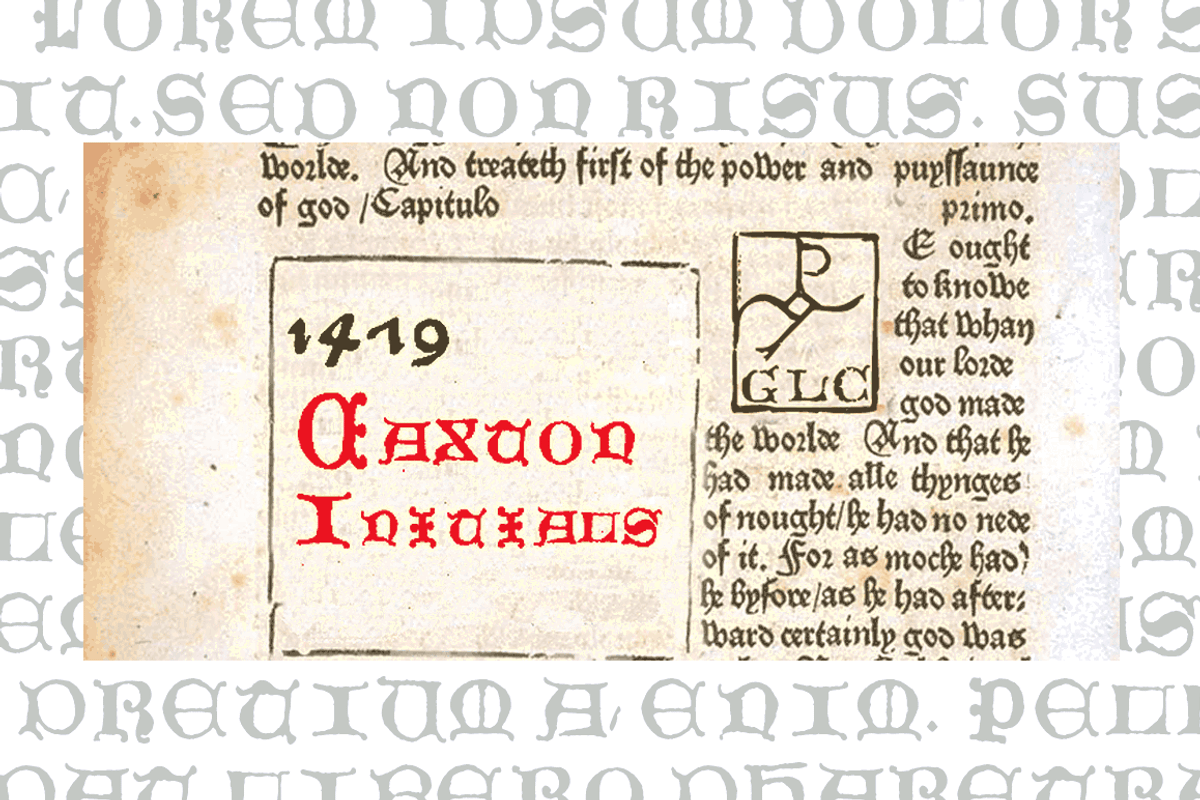 LOREM IPSUM DOLOR S
IT. SED NON RISUS. SUS
worlde. And treateth first of the power and puyssaunce
of god /Capitulo primo.
1479
Caxton
Initials
P
GLC
E ought
to knowe
that whan
our lorde
god made
the worlde And that he
had made alle thynges
of nought/he had no nede
of it. For as moche had/
he byfore/as he had after-
ward certainly god was
PRETIUM A, ENIM. PELL